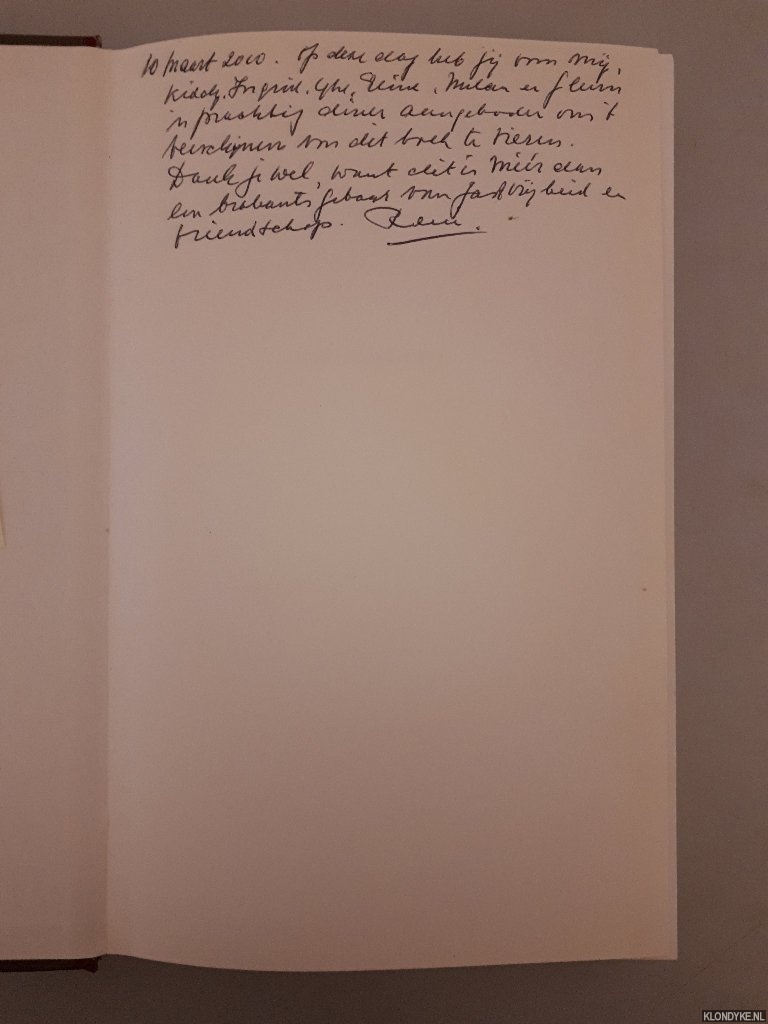 10 maart 2010. Op deze dag heb jij voor mij,
Ingrid, Milan en
'n prachtig diner aangeboden om 't
verschijnen van dit boek te vieren.
Dank je wel, want dit is méér dan
een brabants gebaar van gastvrijheid en
vriendschap.
KLONDYKE.NL